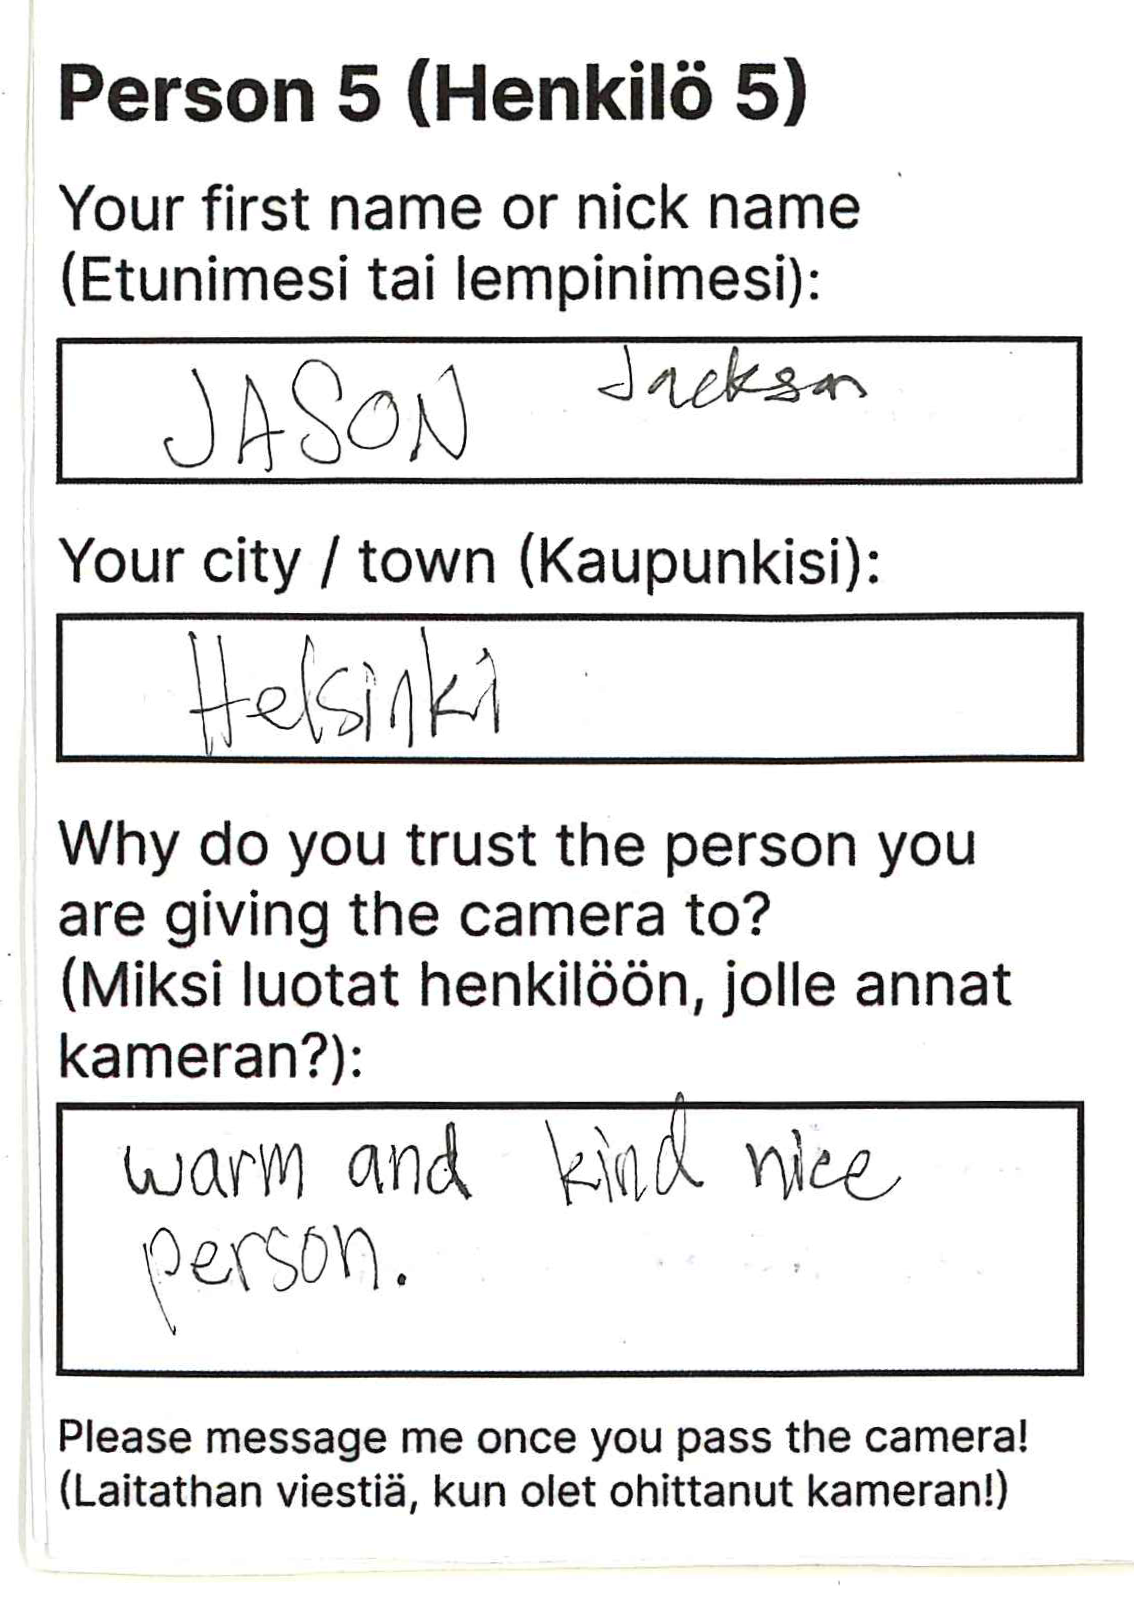 Person 5 (Henkilö 5)
Your first name or nick name
(Etunimesi tai lempinimesi):
JASON Jackson
Your city / town (Kaupunkisi):
Helsinki
Why do you trust the person you
are giving the camera to?
(Miksi luotat henkilöön, jolle annat
kameran?):
warm and kind nice
person.
Please message me once you pass the camera!
(Laitathan viestiä, kun olet ohittanut kameran!)